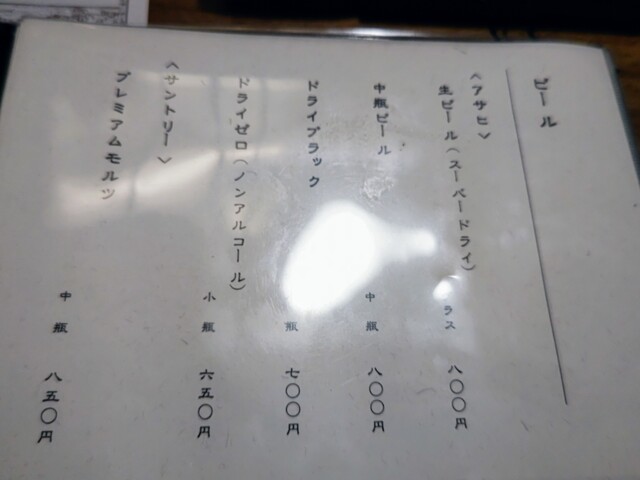 ビール
〈アサヒ〉
生ビール（スーパードライ） ラス 八〇〇円
中瓶ビール 中瓶 八〇〇円
ドライブラック 瓶 七〇〇円
ドライゼロ（ノンアルコール） 小瓶 六五〇円
〈サントリー〉
プレミアムモルツ 中瓶 八五〇円